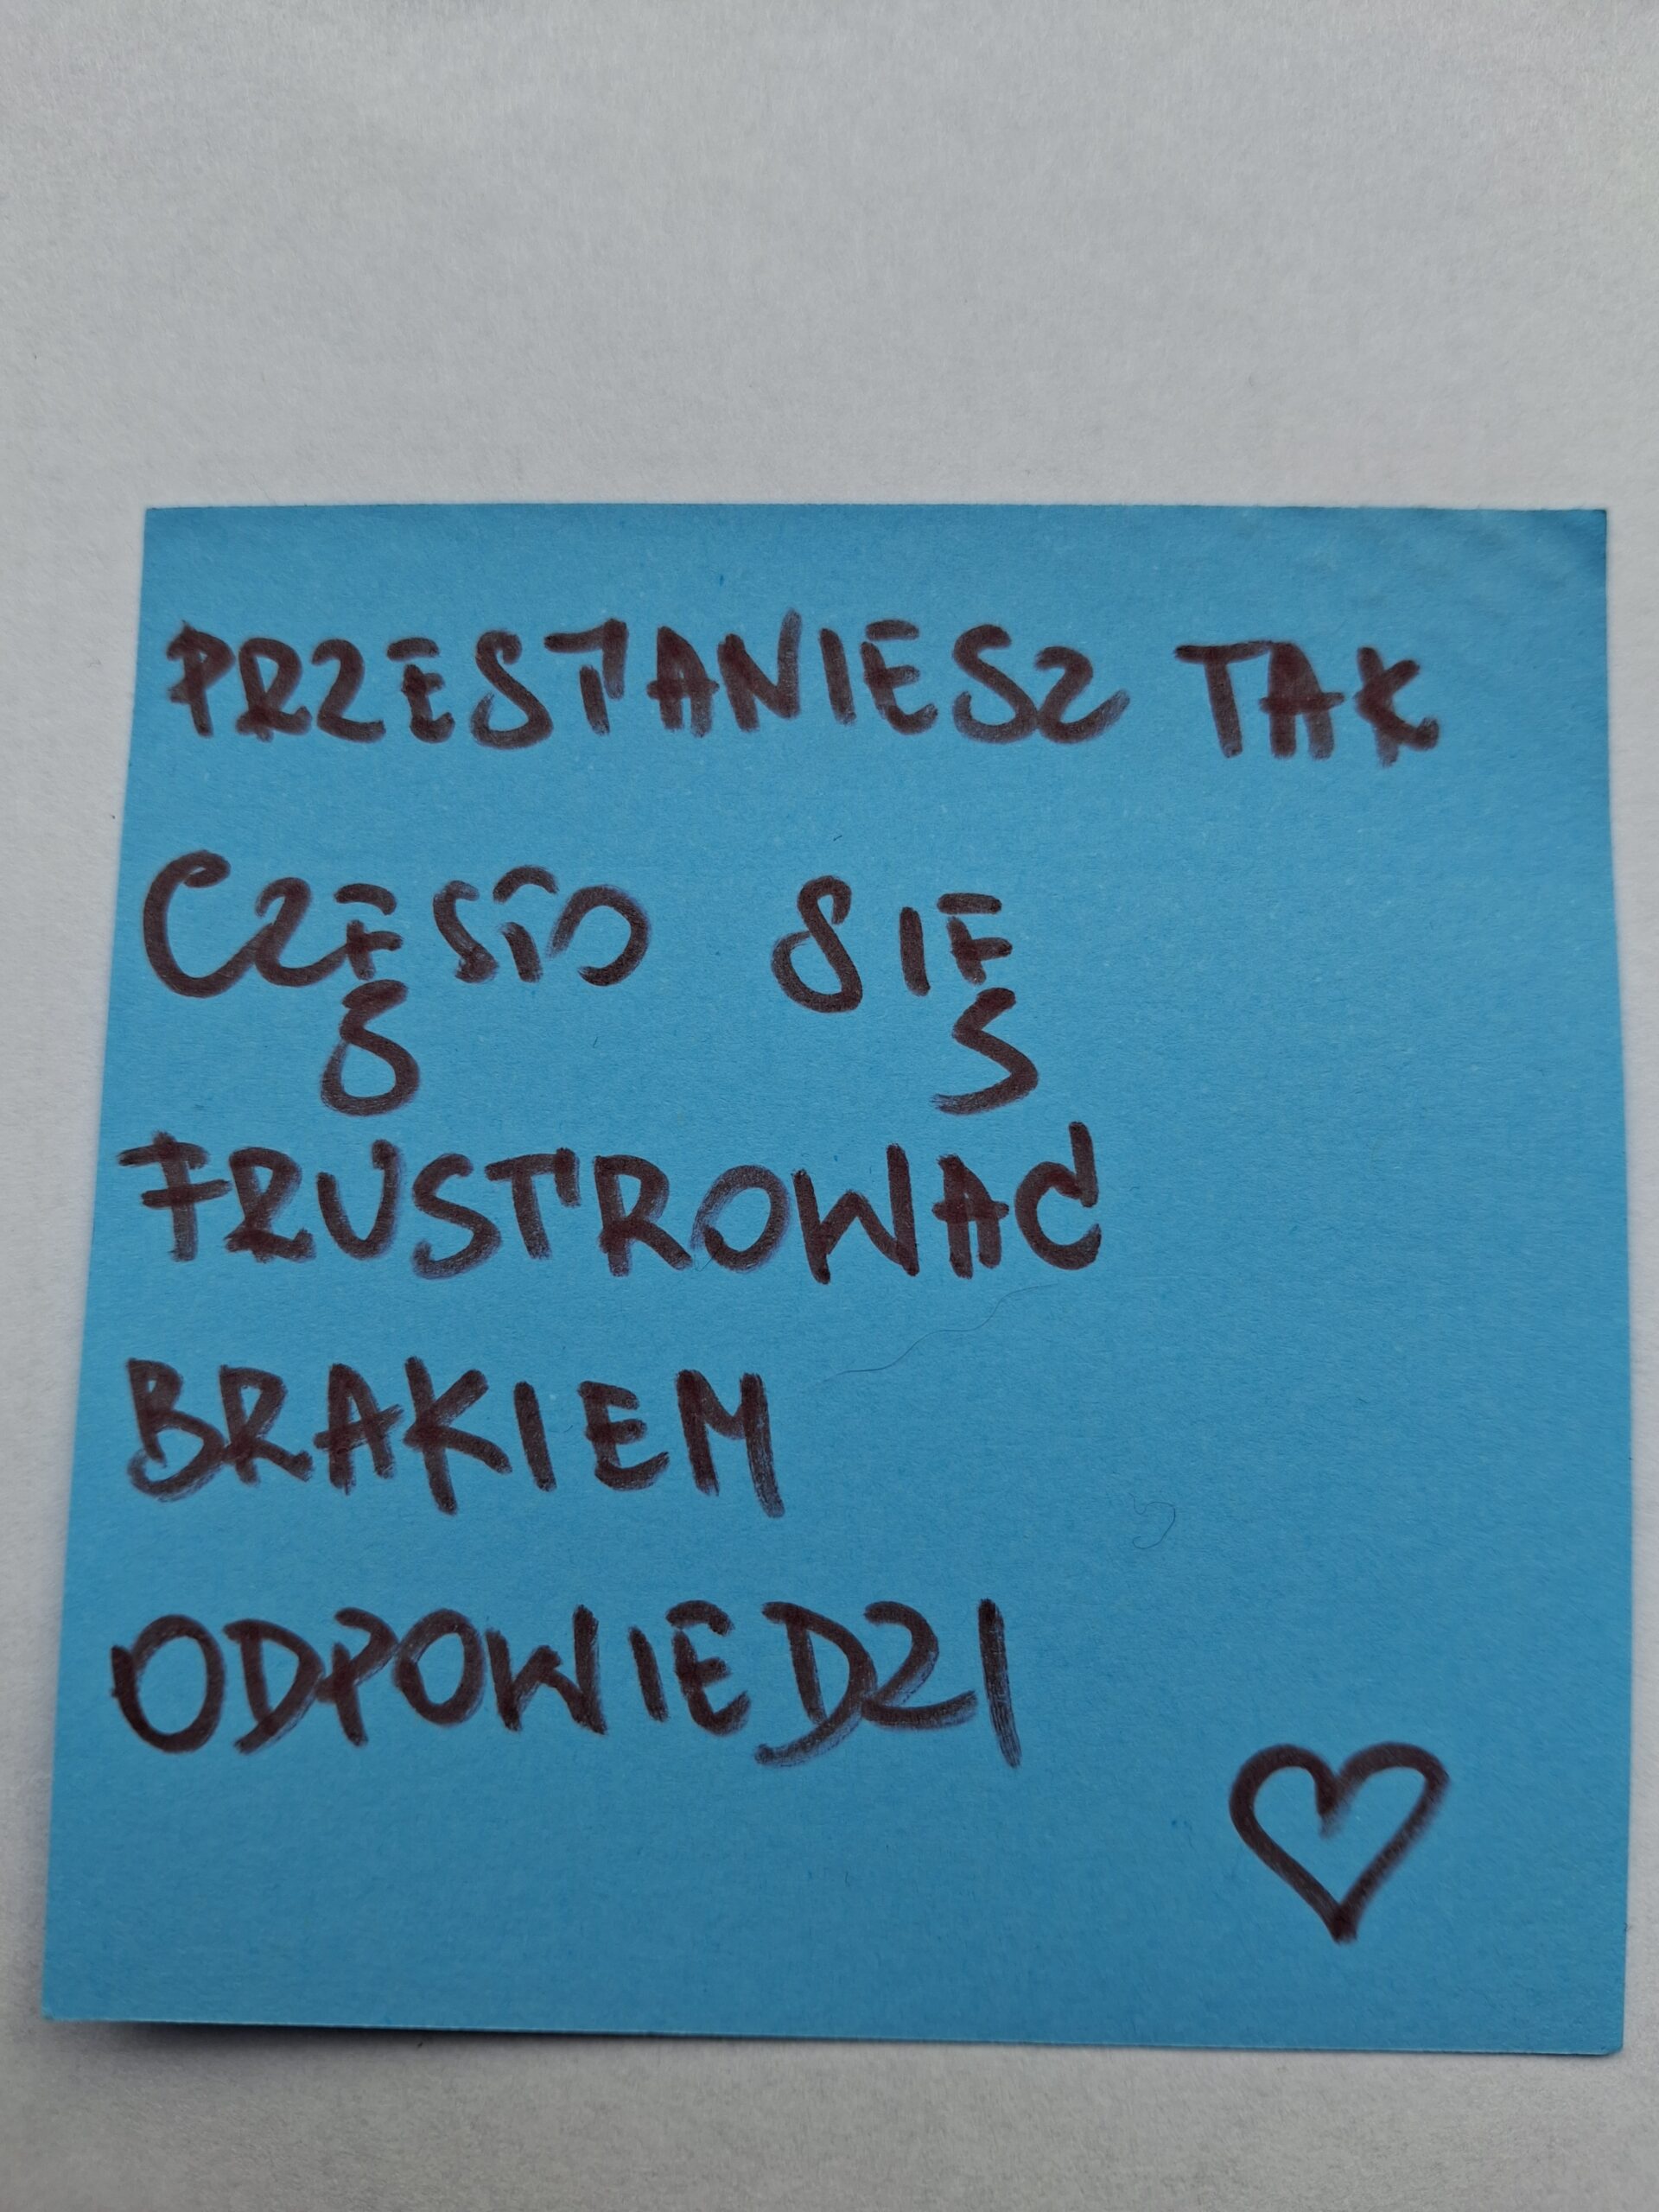 PRZESTANIESZ TAK
CZĘSTO SIĘ
FRUSTROWAĆ
BRAKIEM
ODPOWIEDZI